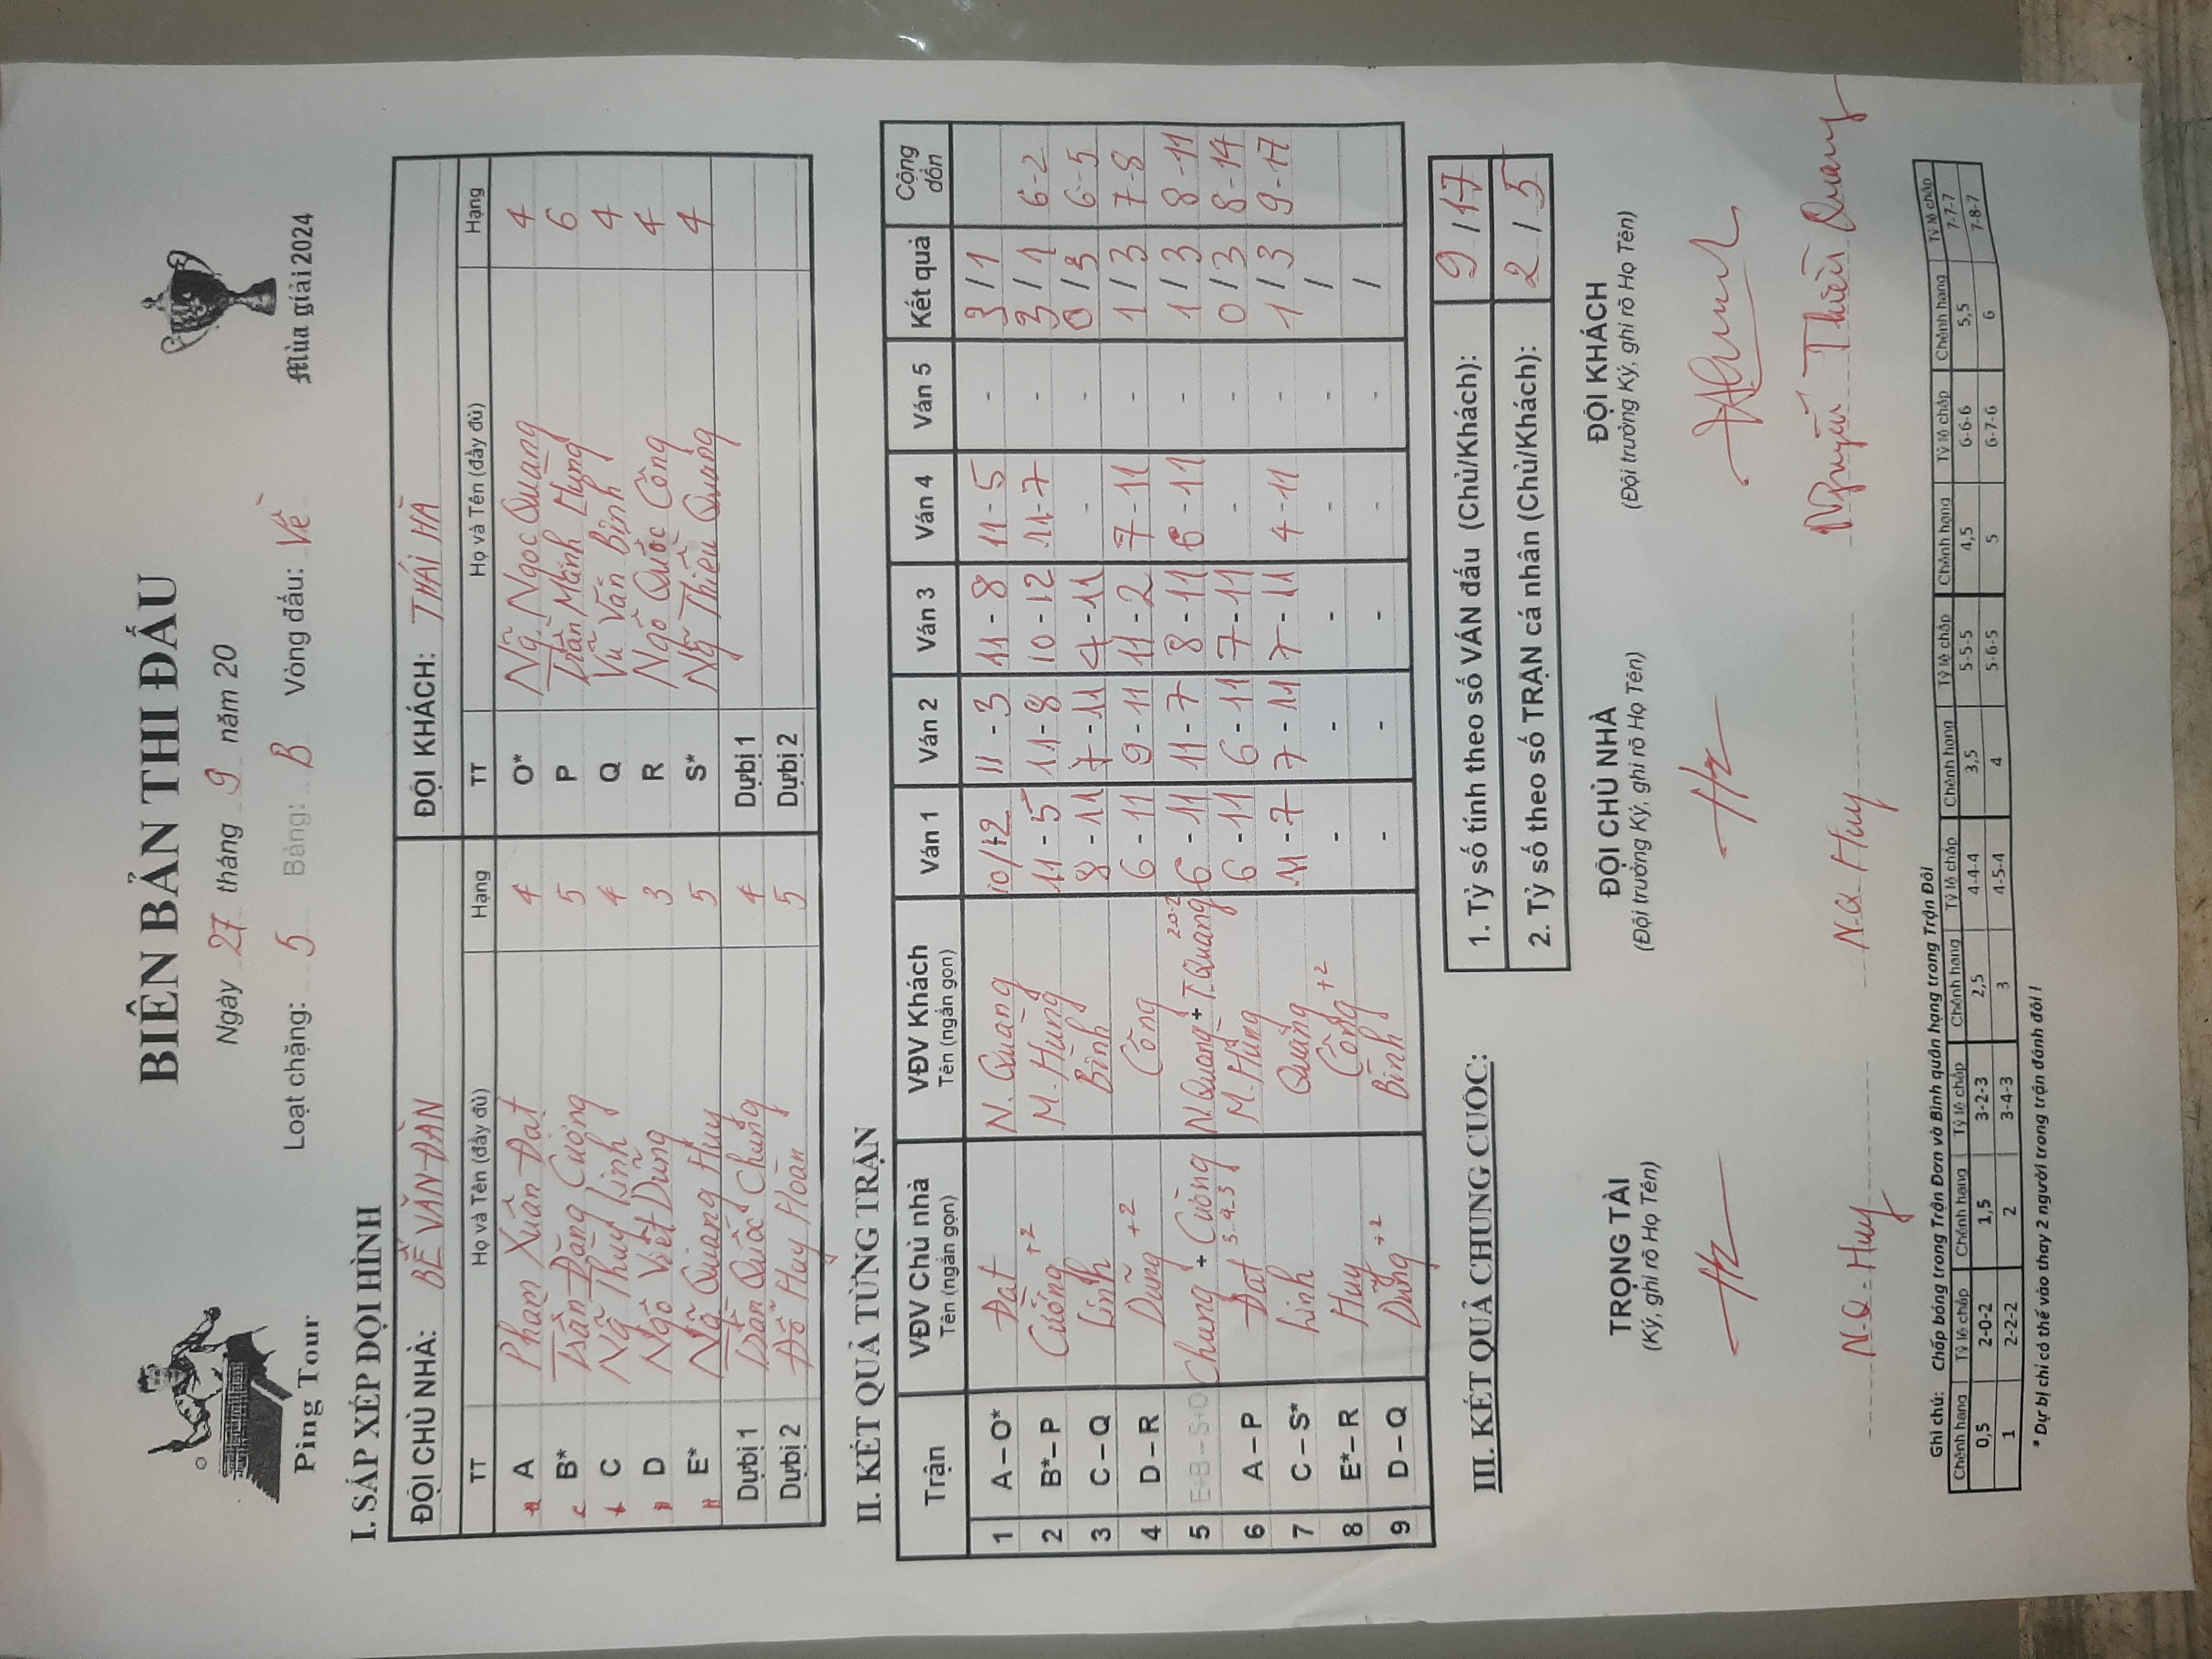 BIÊN BẢN THI ĐẤU
Ngày 27 tháng 9 năm 20
Loạt chặng: 5 Bảng: B Vòng đấu: Về
Ping Tour
Mùa giải 2024
I. SẮP XẾP ĐỘI HÌNH
ĐỘI CHỦ NHÀ: BẾ VĂN ĐÀN ĐỘI KHÁCH: THÁI HÀ
TT Họ và Tên (đầy đủ) Hạng TT Họ và Tên (đầy đủ) Hạng
A Phạm Xuân Đạt 4 O* Ng. Ngọc Quang 4
B* Trần Đăng Cường 5 P Trần Mạnh Hùng 6
C Ng Thùy Linh 4 Q Vũ Văn Bình 4
D Ngô Việt Dũng 3 R Ngô Quốc Công 4
E* Ng Quang Huy 5 S* Ng Thiều Quang 4
Dự bị 1 Trần Quốc Chung 4 Dự bị 1
Dự bị 2 Đỗ Huy Hoàn 5 Dự bị 2
II. KẾT QUẢ TỪNG TRẬN
Trận VĐV Chủ nhà Tên (ngắn gọn) VĐV Khách Tên (ngắn gọn) Ván 1 Ván 2 Ván 3 Ván 4 Ván 5 Kết quả Cộng dồn
1 A – O* Đạt N. Quang 10/12 11 - 3 11 - 8 11 - 5 - 3 / 1
2 B* – P Cường +2 M. Hùng 11 - 5 11 - 8 10 - 12 11 - 7 - 3 / 1 6-2
3 C – Q Linh Bình 8 - 11 7 - 11 4 - 11 - - 0 / 3 6-5
4 D – R Dũng +2 Công 6 - 11 9 - 11 11 - 2 7 - 11 - 1 / 3 7-8
5 E+B – S+O Chung + Cường 3-4-3 N Quang + T. Quang 6 - 11 11 - 7 8 - 11 6 - 11 - 1 / 3 8-11
6 A – P Đạt M. Hùng 6 - 11 6 - 11 7 - 11 - - 0 / 3 8-14
7 C – S* Linh Quang 11 - 7 7 - 11 7 - 11 4 - 11 - 1 / 3 9-17
8 E* – R Huy Công +2 - - - - - /
9 D – Q Dũng +2 Bình - - - - - /
III. KẾT QUẢ CHUNG CUỘC:
1. Tỷ số tính theo số VÁN đấu (Chủ/Khách): 9 / 17
2. Tỷ số theo số TRẬN cá nhân (Chủ/Khách): 2 / 5
TRỌNG TÀI ĐỘI CHỦ NHÀ ĐỘI KHÁCH
(Ký, ghi rõ Họ Tên) (Đội trưởng Ký, ghi rõ Họ Tên) (Đội trưởng Ký, ghi rõ Họ Tên)
N.Q. Huy N.Q. Huy Nguyễn Thiều Quang
Ghi chú: Chấp bóng trong Trận Đơn và Bình quân hạng trong Trận Đôi
Chênh hạng Tỷ lệ chấp Chênh hạng Tỷ lệ chấp Chênh hạng Tỷ lệ chấp Chênh hạng Tỷ lệ chấp Chênh hạng Tỷ lệ chấp Chênh hạng Tỷ lệ chấp
0,5 2-0-2 1,5 3-2-3 2,5 4-4-4 3,5 5-5-5 4,5 6-6-6 5,5 7-7-7
1 2-2-2 2 3-4-3 3 4-5-4 4 5-6-5 5 6-7-6 6 7-8-7
* Dự bị chỉ có thể vào thay 2 người trong trận đánh đôi !